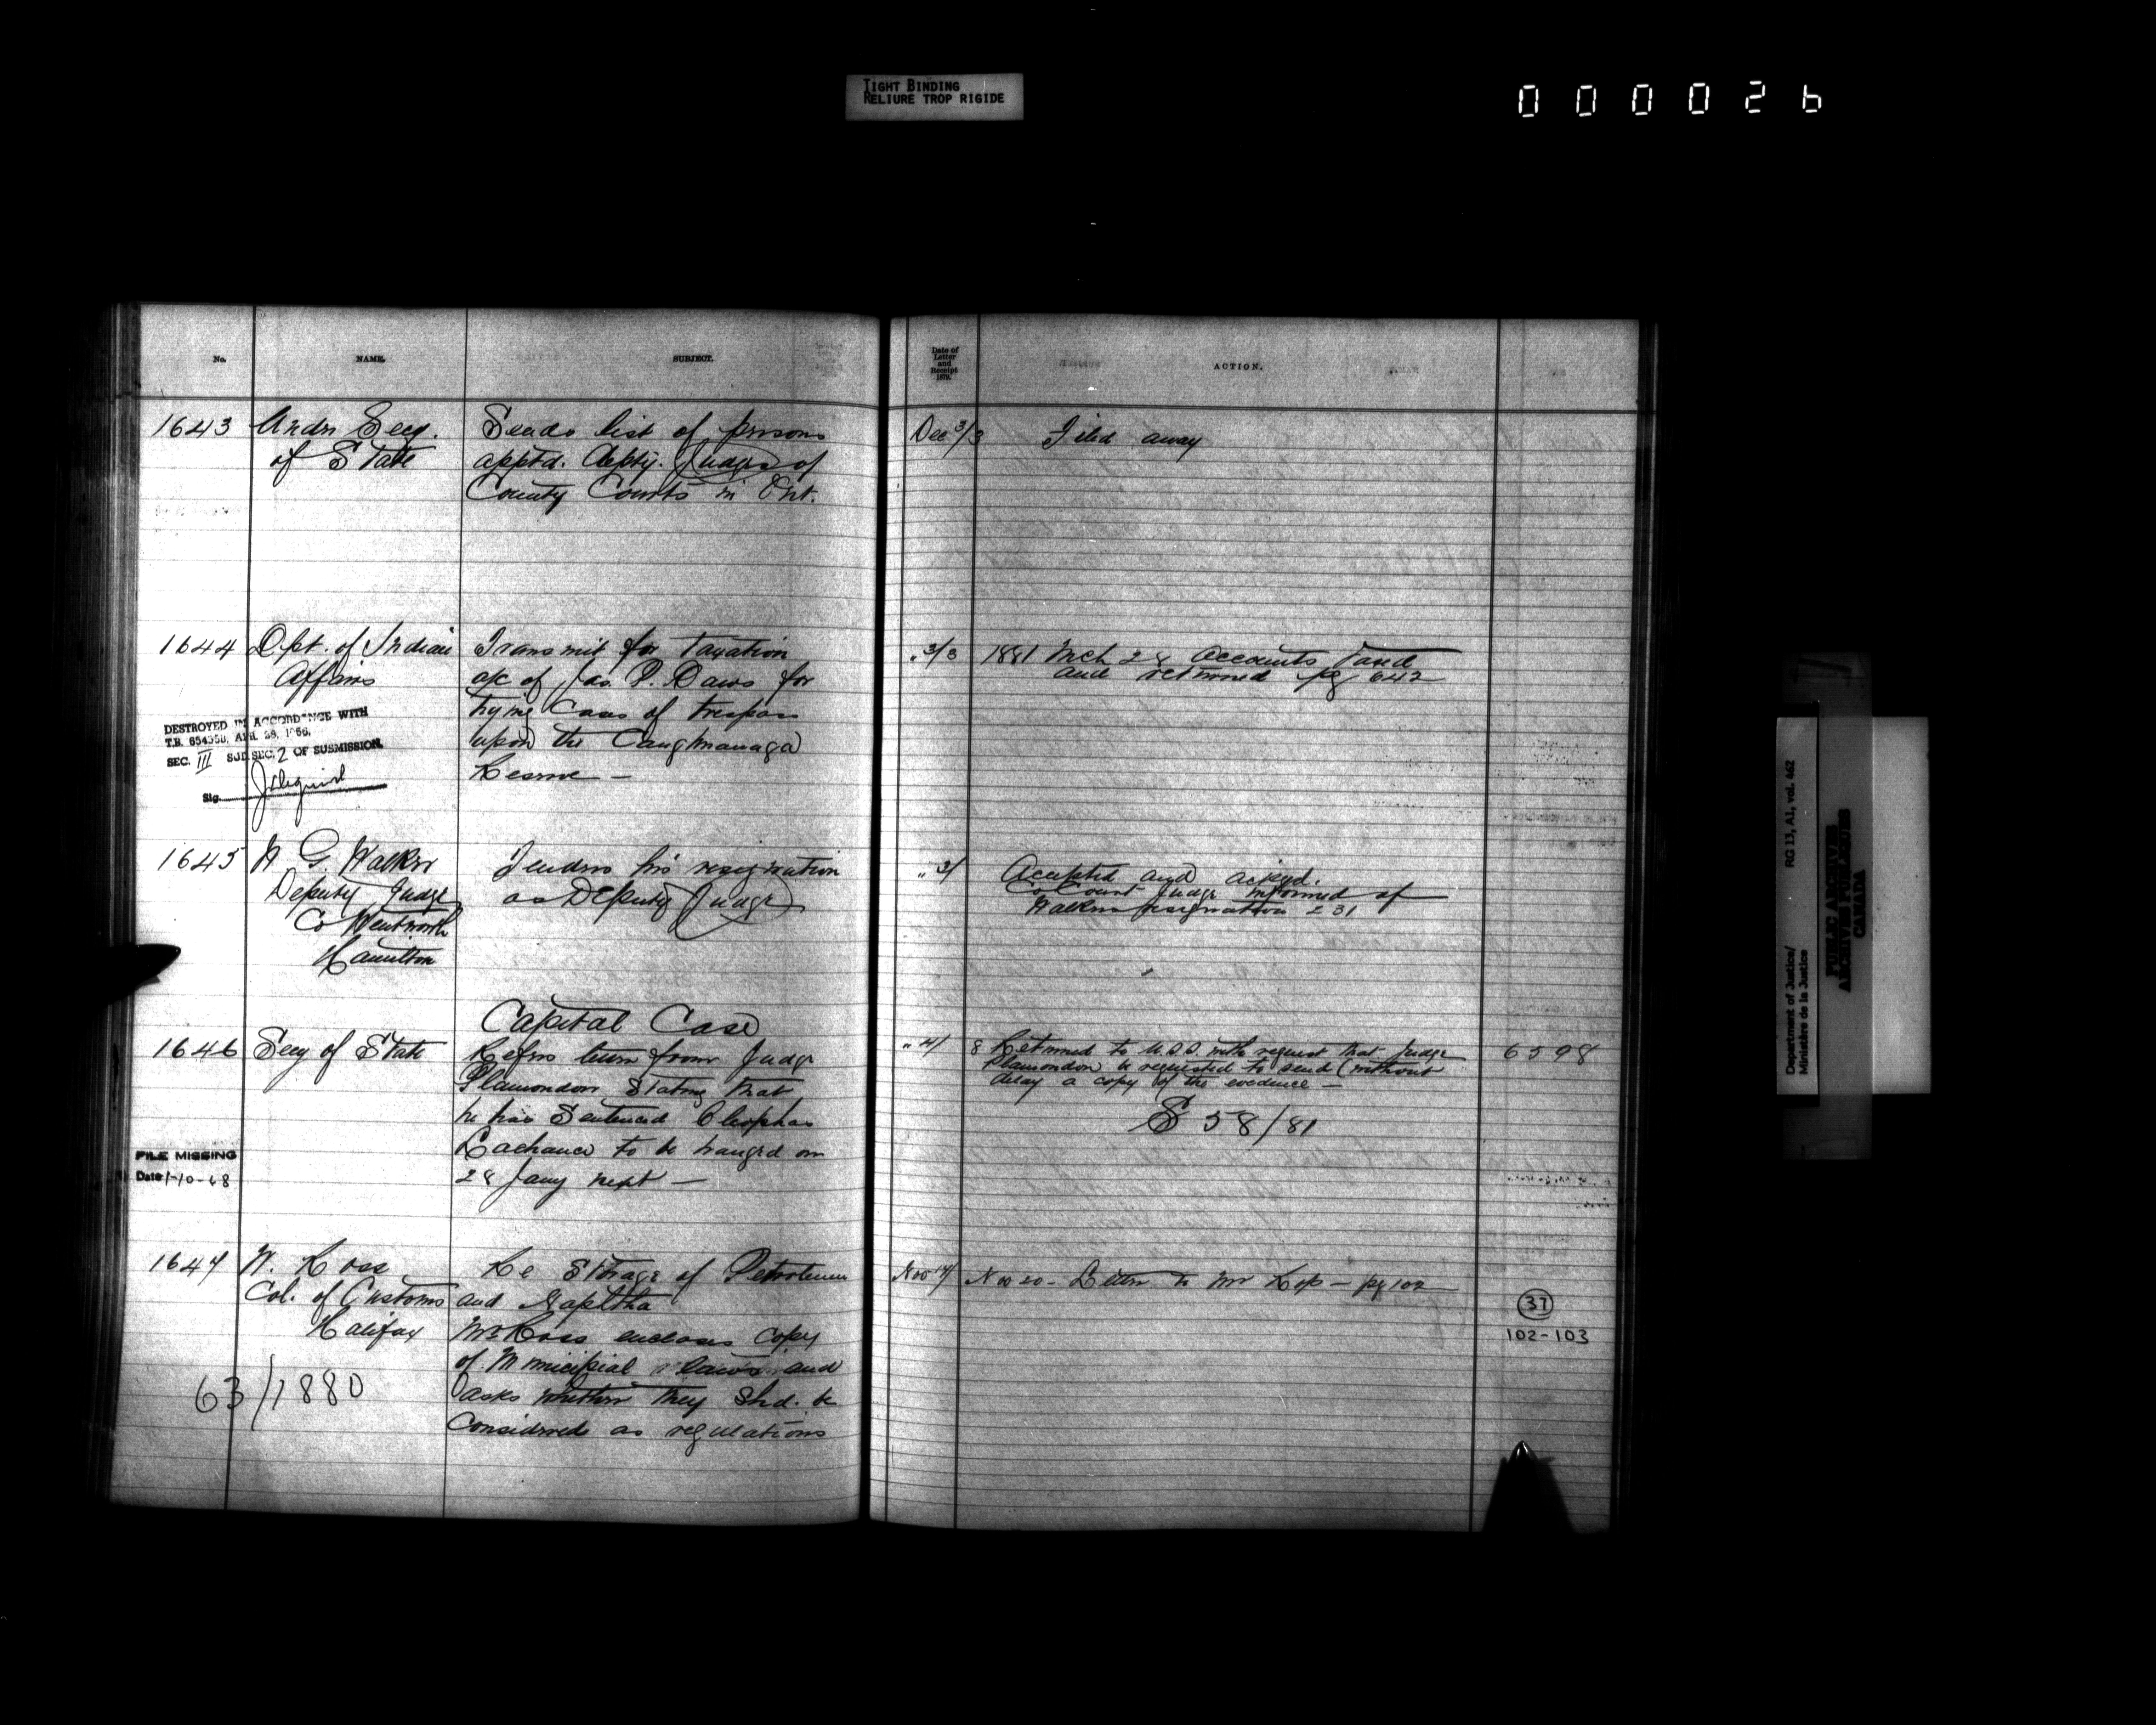 TIGHT BINDING
RELIURE TROP RIGIDE
000026
No.
NAME.
SUBJECT.
Date of
Letter
and
Receipt
1879.
ACTION.
1643
Under Secy.
of State
Sends list of persons
apptd. Depty. Judges of
County Courts in Ont.
Dec 3/3
Filed away
1644
Dpt. of Indian
Affairs
Transmit for taxation
a/c of Jas. P. Daws for
trying Cases of trespass
upon the Caughnawaga
Reserve —
" 3/3
1881 Mch 28 Accounts taxed
and returned pg 642
DESTROYED IN ACCORDANCE WITH
T.B. 654358, APR. 28, 1966,
SEC. III SUB SEC. 2 OF SUSMISSION.
Sig.
1645
W G. Walker
Deputy Judge
Co Wentworth
Hamilton
Tenders his resignation
as Deputy Judge
" 3/
Accepted and ackgd.
Co Court Judge informed of
Walkers resignation 231
1646
Secy of State
Capital Case
Refers from Judge
Plamondon stating that
he has Sentenced Cleophas
Lachance to be hanged on
28 Jany next —
" 4/
8 Returned to U.S.S. with request that Judge
Plamondon be requested to send (without
delay a copy of the evidence —
S 58/81
6598
FILE MISSING
Date 1-10-68
1647
W. Ross
Col. of Customs
Halifax
63/1880
Re Storage of Petroleum
and Naphtha
Mr Ross encloses copy
of Municipal laws and
asks whether they shd. be
Considered as regulations
Nov 17/
Nov 20 - Letter to Mr Ross — pg 102
37
102-103
Department of Justice/
Ministère de la Justice
RG 13, A1, vol. 462
PUBLIC ARCHIVES
ARCHIVES PUBLIQUES
CANADA